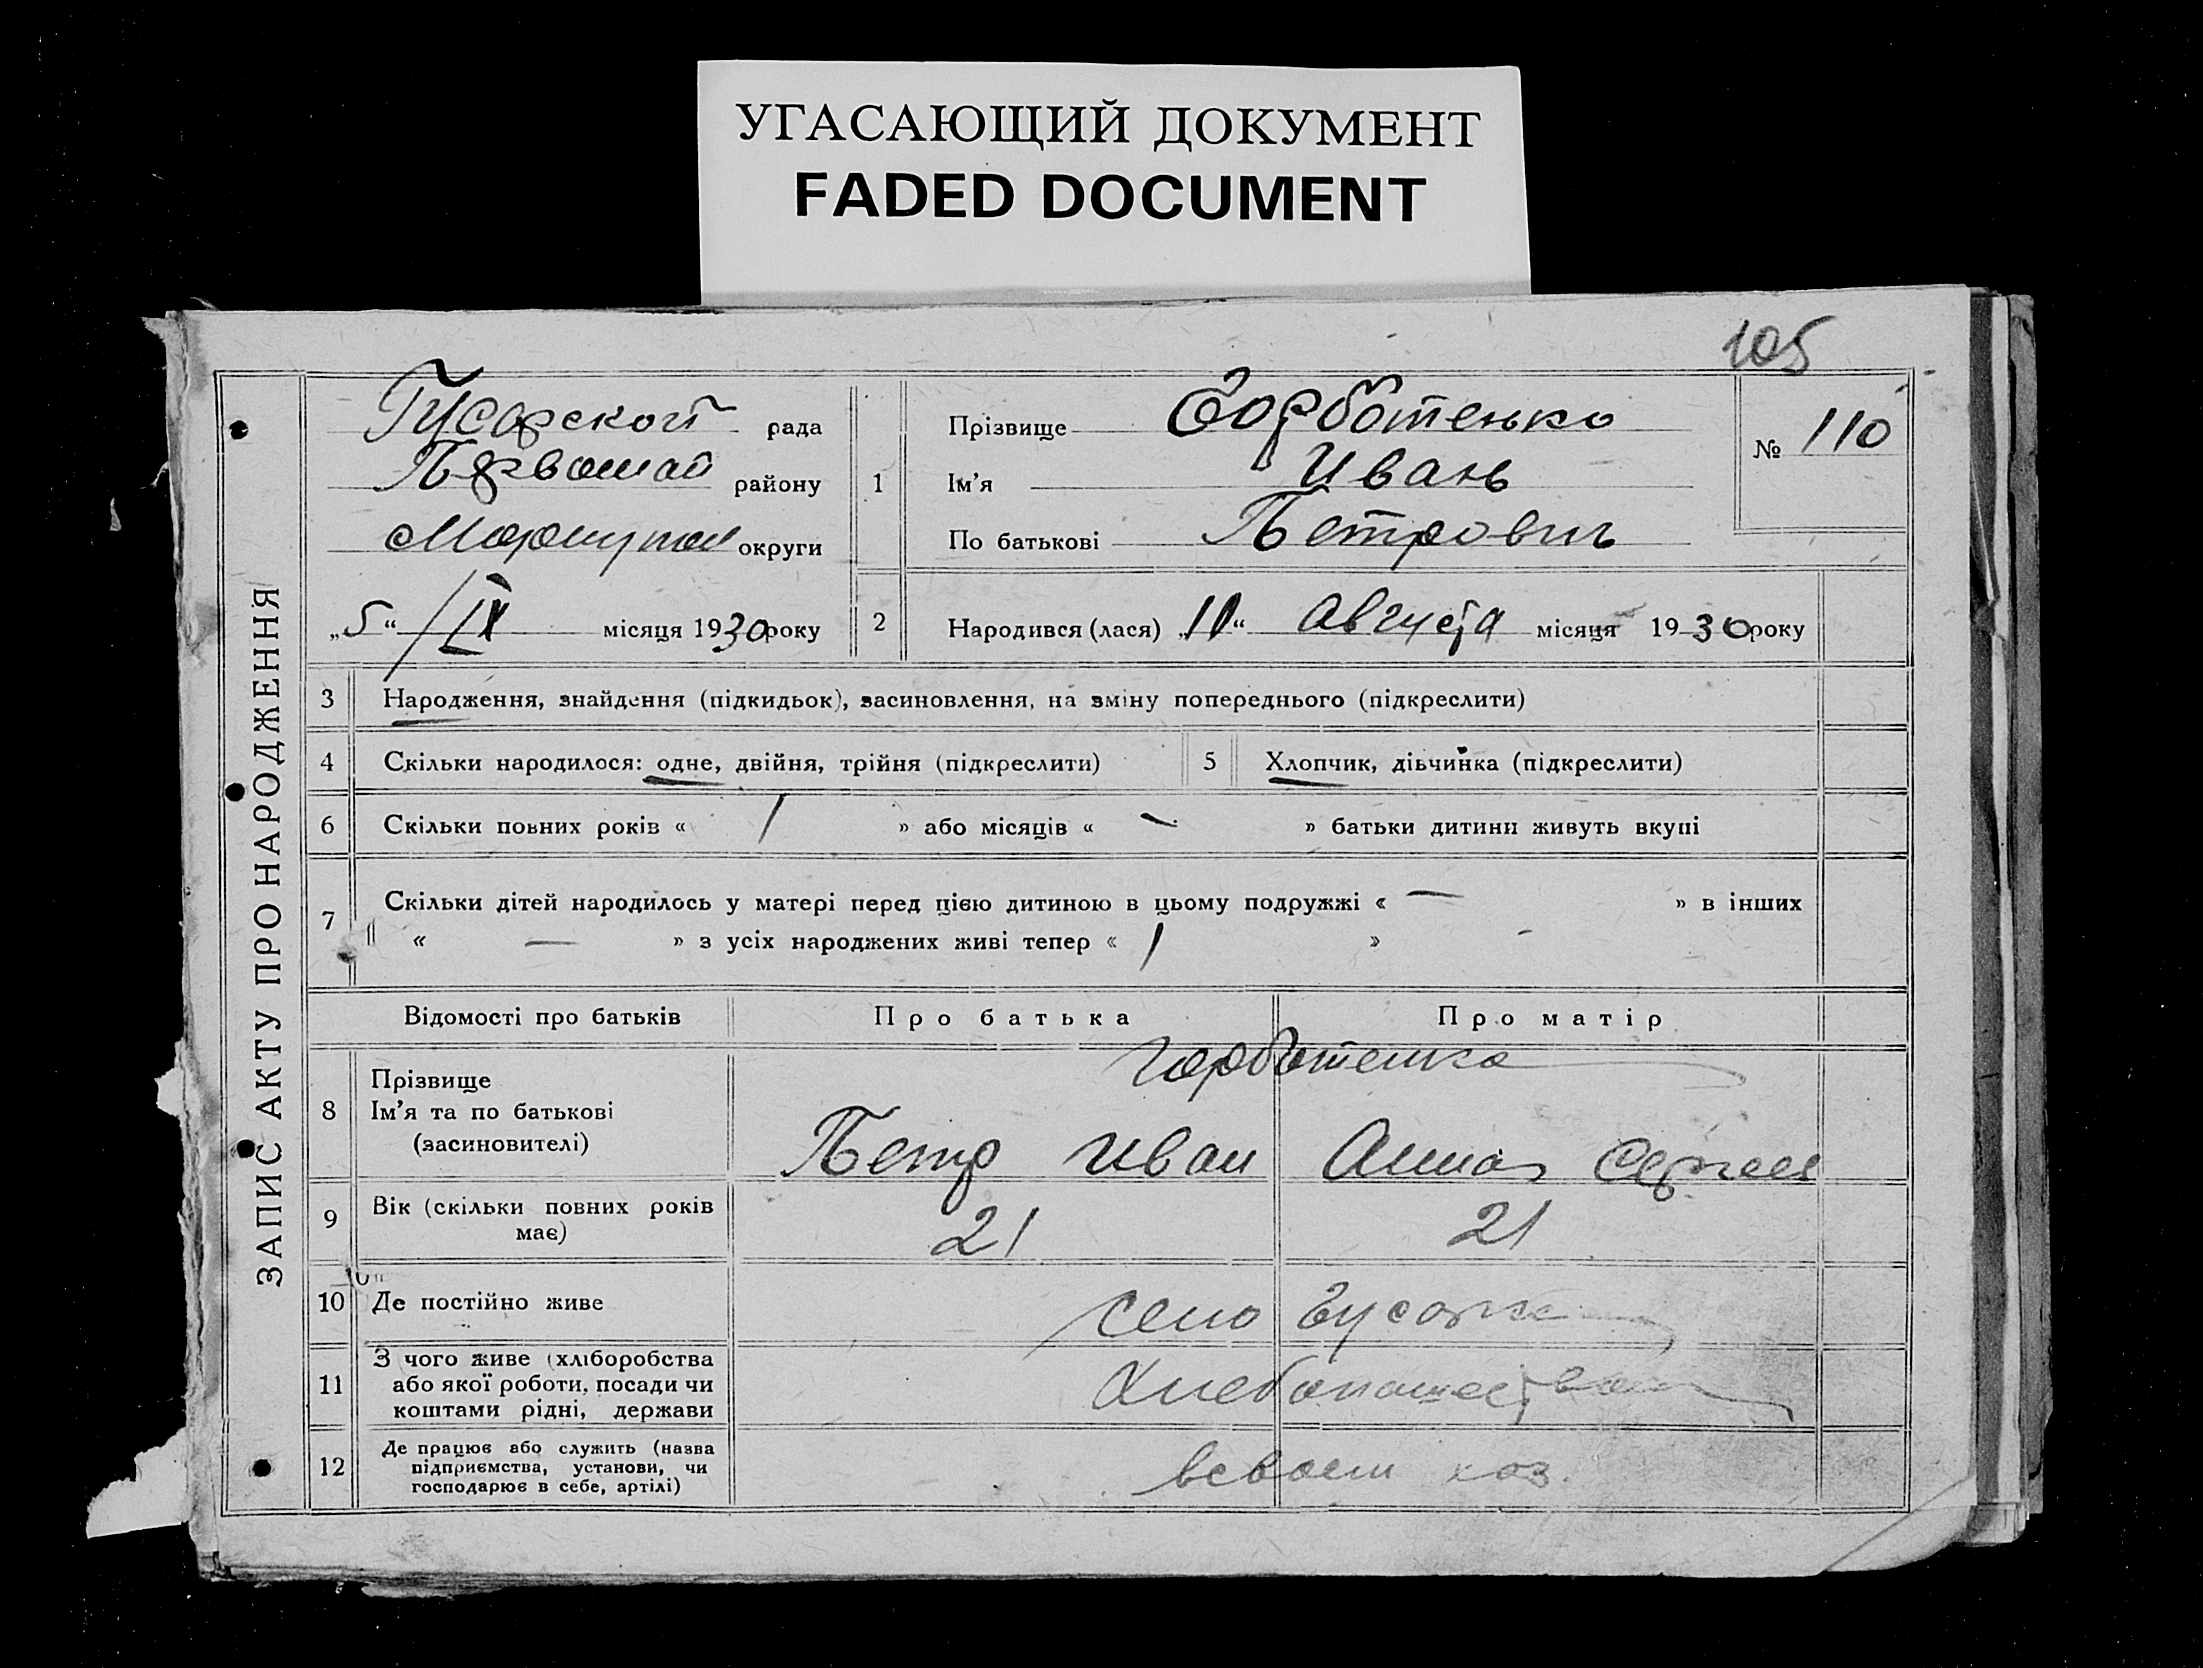 УГАСАЮЩИЙ ДОКУМЕНТ
FADED DOCUMENT
105
ЗАПИС АКТУ ПРО НАРОДЖЕННЯ
Гусарской рада
Первомай району
Мариупол округи
„5“ /IX місяця 1930 року
1
Прізвище Горботенко
Ім'я Иванъ
По батькові Петрович
№ 110
2 Народився (лася) „10“ Августа місяця 1930 року
3 Народження, знайдення (підкидьок), засиновлення, на зміну попереднього (підкреслити)
4 Скільки народилося: одне, двійня, трійня (підкреслити) 5 Хлопчик, дівчинка (підкреслити)
6 Скільки повних років « 1 » або місяців « — » батьки дитини живуть вкупі
7 Скільки дітей народилось у матері перед цією дитиною в цьому подружжі « — » в інших
« — » з усіх народжених живі тепер « 1 »
Відомості про батьків Про батька Про матір
Горботенко
8 Прізвище
Ім'я та по батькові
(засиновителі)
Петр Иван Анна Сергеев
9 Вік (скільки повних років
має)
21 21
10 Де постійно живе село Гусарка
11 З чого живе (хліборобства
або якої роботи, посади чи
коштами рідні, держави
Хлебопашеством
12 Де працює або служить (назва
підприємства, установи, чи
господарює в себе, артілі)
всвоем хоз.